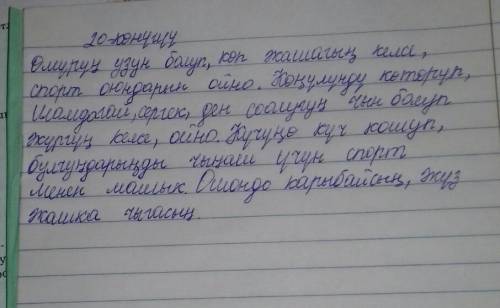 20-көнүгүү
Өмүрүң узун болуп, көп жашагың келсе,
спорт оюндарын ойно. Көңүлүңдү көтөрүп,
шамдагай, сергек, ден соолугуң чың болуп
жүргүң келсе, ойно. Күчүңө күч кошуп,
булчуңдарыңды чыңаш үчүн спорт
менен машык. Ошондо карыбайсың, жүз
жашка чыгасың.